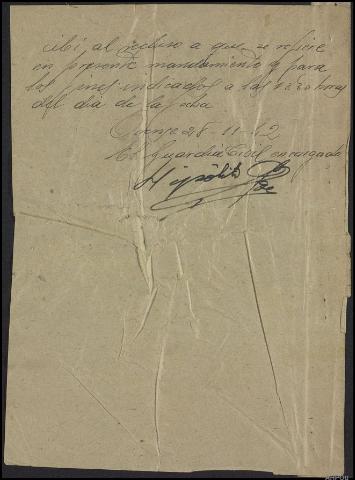 cibí, al recluso a que se refiere
en presente mandamiento y para
los fines indicados a las horas
del dia de la fecha
Orense 28-11-42
El Guardia Civil encargado
Hipólito